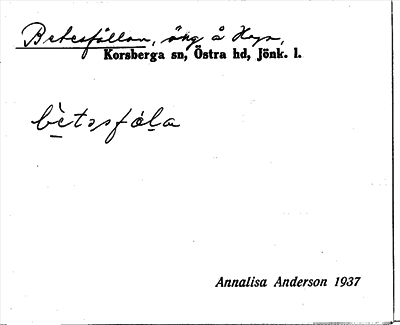 Betesfållan, äng å
Korsberga sn, Östra hd, Jönk. l.
bètəsfåla
Annalisa Anderson 1937